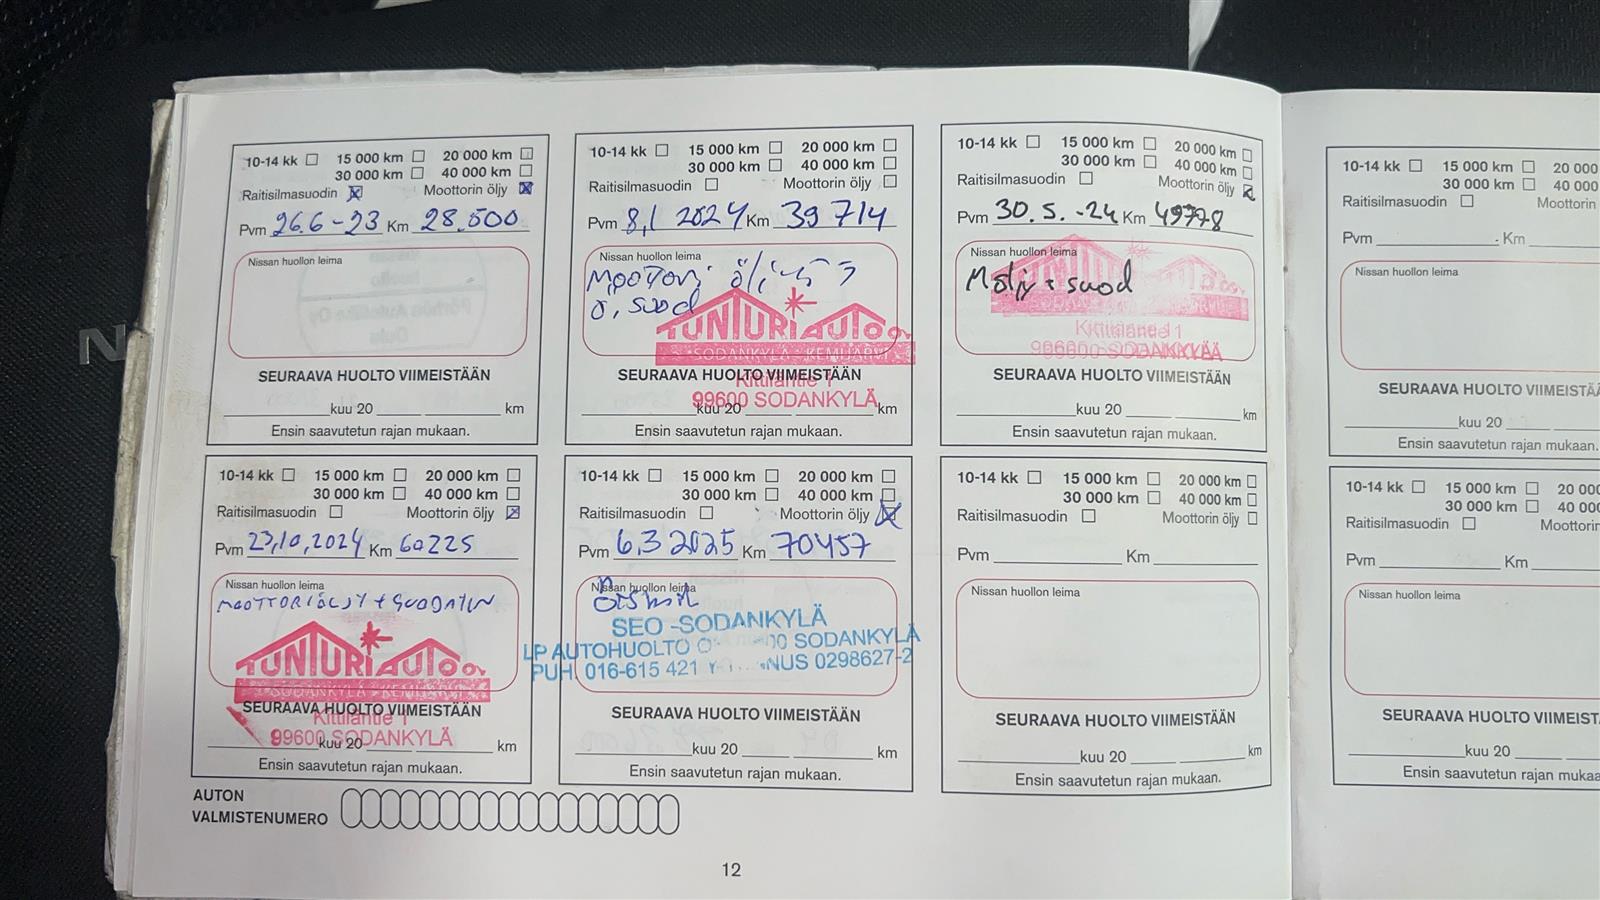 10-14 kk 15 000 km 20 000 km
30 000 km 40 000 km
Raitisilmasuodin Moottorin öljy
Pvm 26.6-23 Km 28.500
Nissan huollon leima
SEURAAVA HUOLTO VIIMEISTÄÄN
kuu 20 km
Ensin saavutetun rajan mukaan.
10-14 kk 15 000 km 20 000 km
30 000 km 40 000 km
Raitisilmasuodin Moottorin öljy
Pvm 8,1 2024 Km 39 714
Nissan huollon leima
suod
TUNTURIAUTO OY
SODANKYLÄ - KEMIJÄRVI
SEURAAVA HUOLTO VIIMEISTÄÄN
Kittiläntie 1
99600 SODANKYLÄ
kuu 20 km
Ensin saavutetun rajan mukaan.
10-14 kk 15 000 km 20 000 km
30 000 km 40 000 km
Raitisilmasuodin Moottorin öljy
Pvm 30.5.-24 Km 49778
Nissan huollon leima
Möljy + suod
Kittiläntie 1
99600 SODANKYLÄ
SEURAAVA HUOLTO VIIMEISTÄÄN
kuu 20 km
Ensin saavutetun rajan mukaan.
10-14 kk 15 000 km 20 000
30 000 km 40 000
Raitisilmasuodin Moottorin
Pvm Km
Nissan huollon leima
SEURAAVA HUOLTO VIIMEISTÄ
kuu 20
Ensin saavutetun rajan mukaan.
10-14 kk 15 000 km 20 000 km
30 000 km 40 000 km
Raitisilmasuodin Moottorin öljy
Pvm 23,10,2024 Km 60225
Nissan huollon leima
MOOTTORIÖLJY + SUODATIN
TUNTURIAUTO OY
SODANKYLÄ - KEMIJÄRVI
SEURAAVA HUOLTO VIIMEISTÄÄN
Kittiläntie 1
99600 SODANKYLÄ
kuu 20 km
Ensin saavutetun rajan mukaan.
10-14 kk 15 000 km 20 000 km
30 000 km 40 000 km
Raitisilmasuodin Moottorin öljy
Pvm 6.3 2025 Km 70457
Nissan huollon leima
SEO -SODANKYLÄ
LP AUTOHUOLTO 00 SODANKYLÄ
PUH. 016-615 421 NUS 0298627-2
SEURAAVA HUOLTO VIIMEISTÄÄN
kuu 20 km
Ensin saavutetun rajan mukaan.
10-14 kk 15 000 km 20 000 km
30 000 km 40 000 km
Raitisilmasuodin Moottorin öljy
Pvm Km
Nissan huollon leima
SEURAAVA HUOLTO VIIMEISTÄÄN
kuu 20 km
Ensin saavutetun rajan mukaan.
10-14 kk 15 000 km 20 000
30 000 km 40 000
Raitisilmasuodin Moottorin
Pvm Km
Nissan huollon leima
SEURAAVA HUOLTO VIIMEIST
kuu 20
Ensin saavutetun rajan mukaa
AUTON
VALMISTENUMERO
12